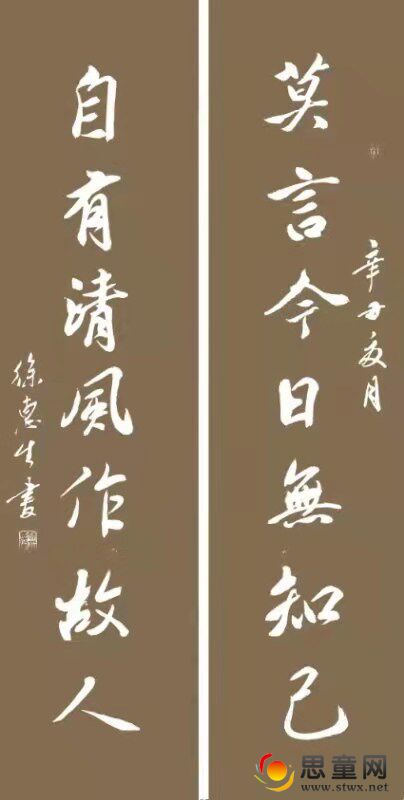 莫言今日無知己
辛丑夏月
自有清風作故人
徐惠生書
思童网
www.stwx.net